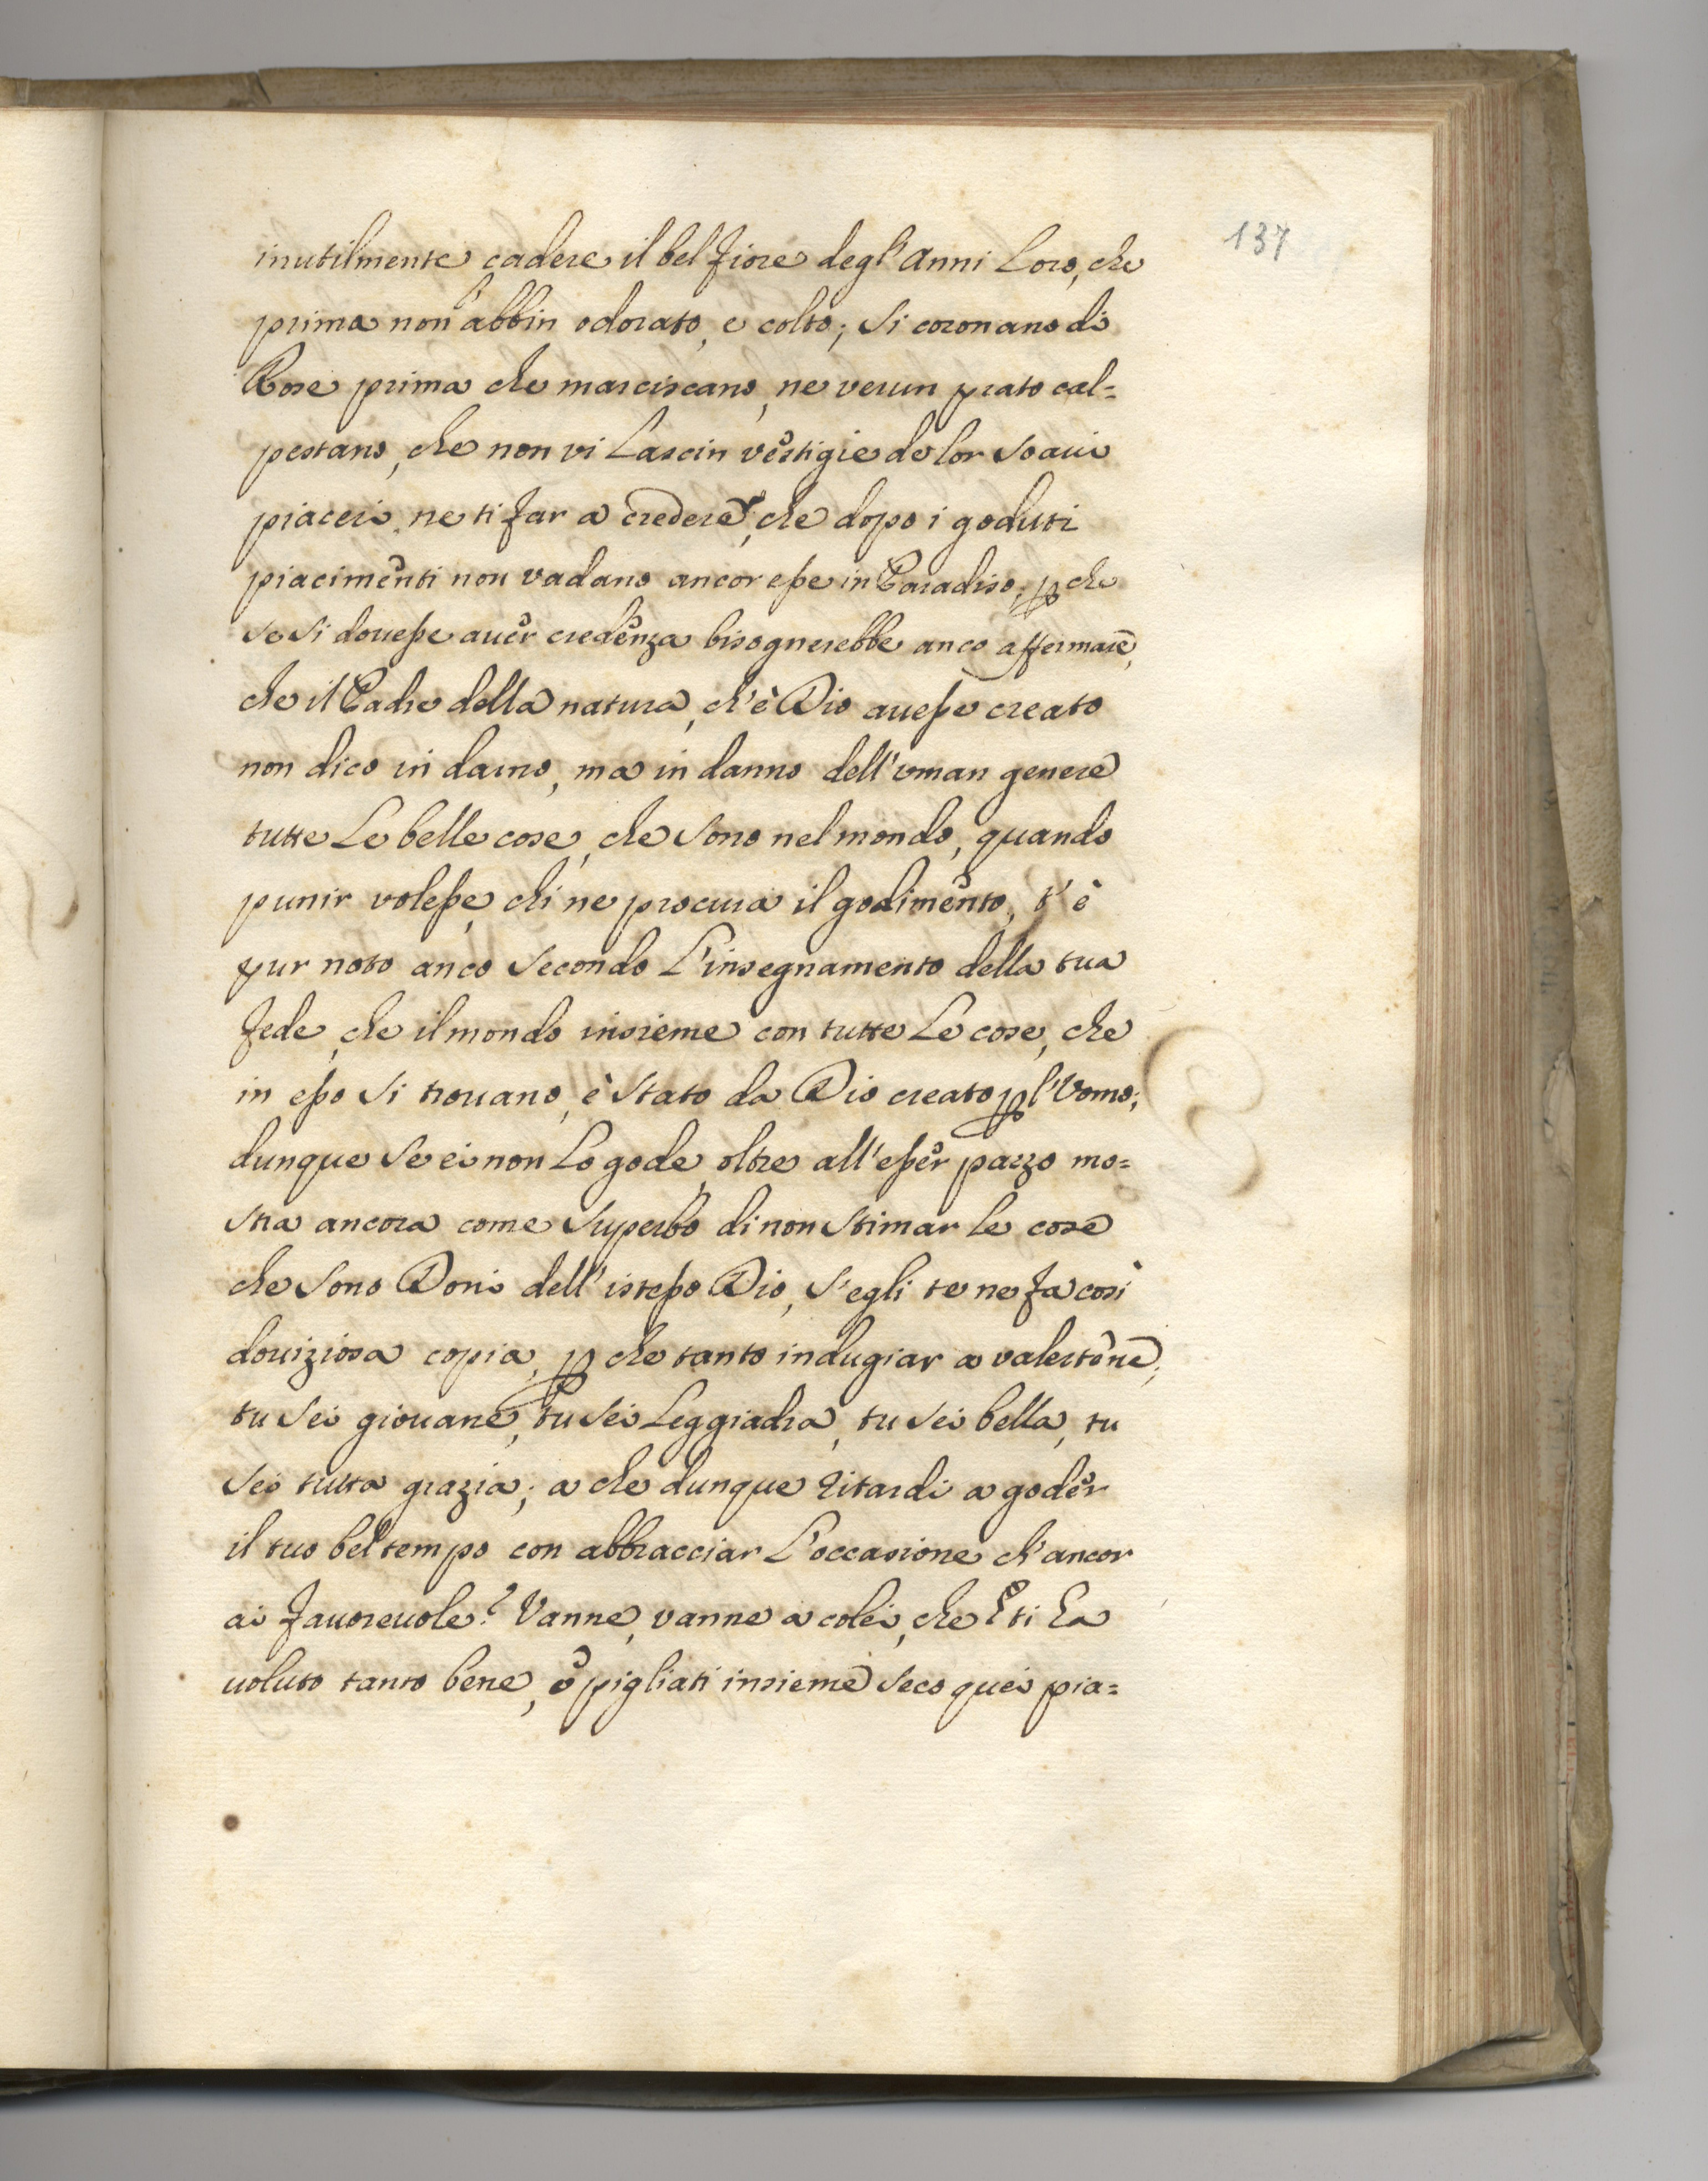 137
inutilmente cadere il bel fiore degl'Anni Loro, che
prima non l'abbin odorato, e colto; si coronano di
Rose prima che marciscano, ne verun prato cal=
pestano, che non vi Lascin vestigie de lor soaui
piaceri, ne ti far a credere, che dopo i goduti
piacimenti non vadano ancor esse in Paradiso, p che
se si douesse auer credenza bisognerebbe anco affermare,
che il Padre della natura, ch'è Dio auesse creato
non dico in darno, ma in danno dell'vman genere
tutte Le belle cose, che sono nel mondo, quando
punir volesse, chi ne procura il godimento, t'è
pur noto anco secondo L'insegnamento della tua
fede, che il mondo insieme con tutte Le cose, che
in esso si trouano, è stato da Dio creato p l'Vomo;
dunque se ei non Lo gode, oltre all'esser pazzo mo=
stra ancora come superbo di non stimar le cose
che sono Doni dell'istesso Dio, s'egli te ne fa così
douiziosa copia, p che tanto indugiar a valertene,
tu sei giouane, tu sei Leggiadra, tu sei bella, tu
sei tutta grazia; a che dunque ritardi a goder
il tuo bel tempo con abbracciar L'occasione ch'ancor
ai fauoreuole? Vanne, vanne a colei, che ti ha
uoluto tanto bene, e pigliati insieme seco quei pia=